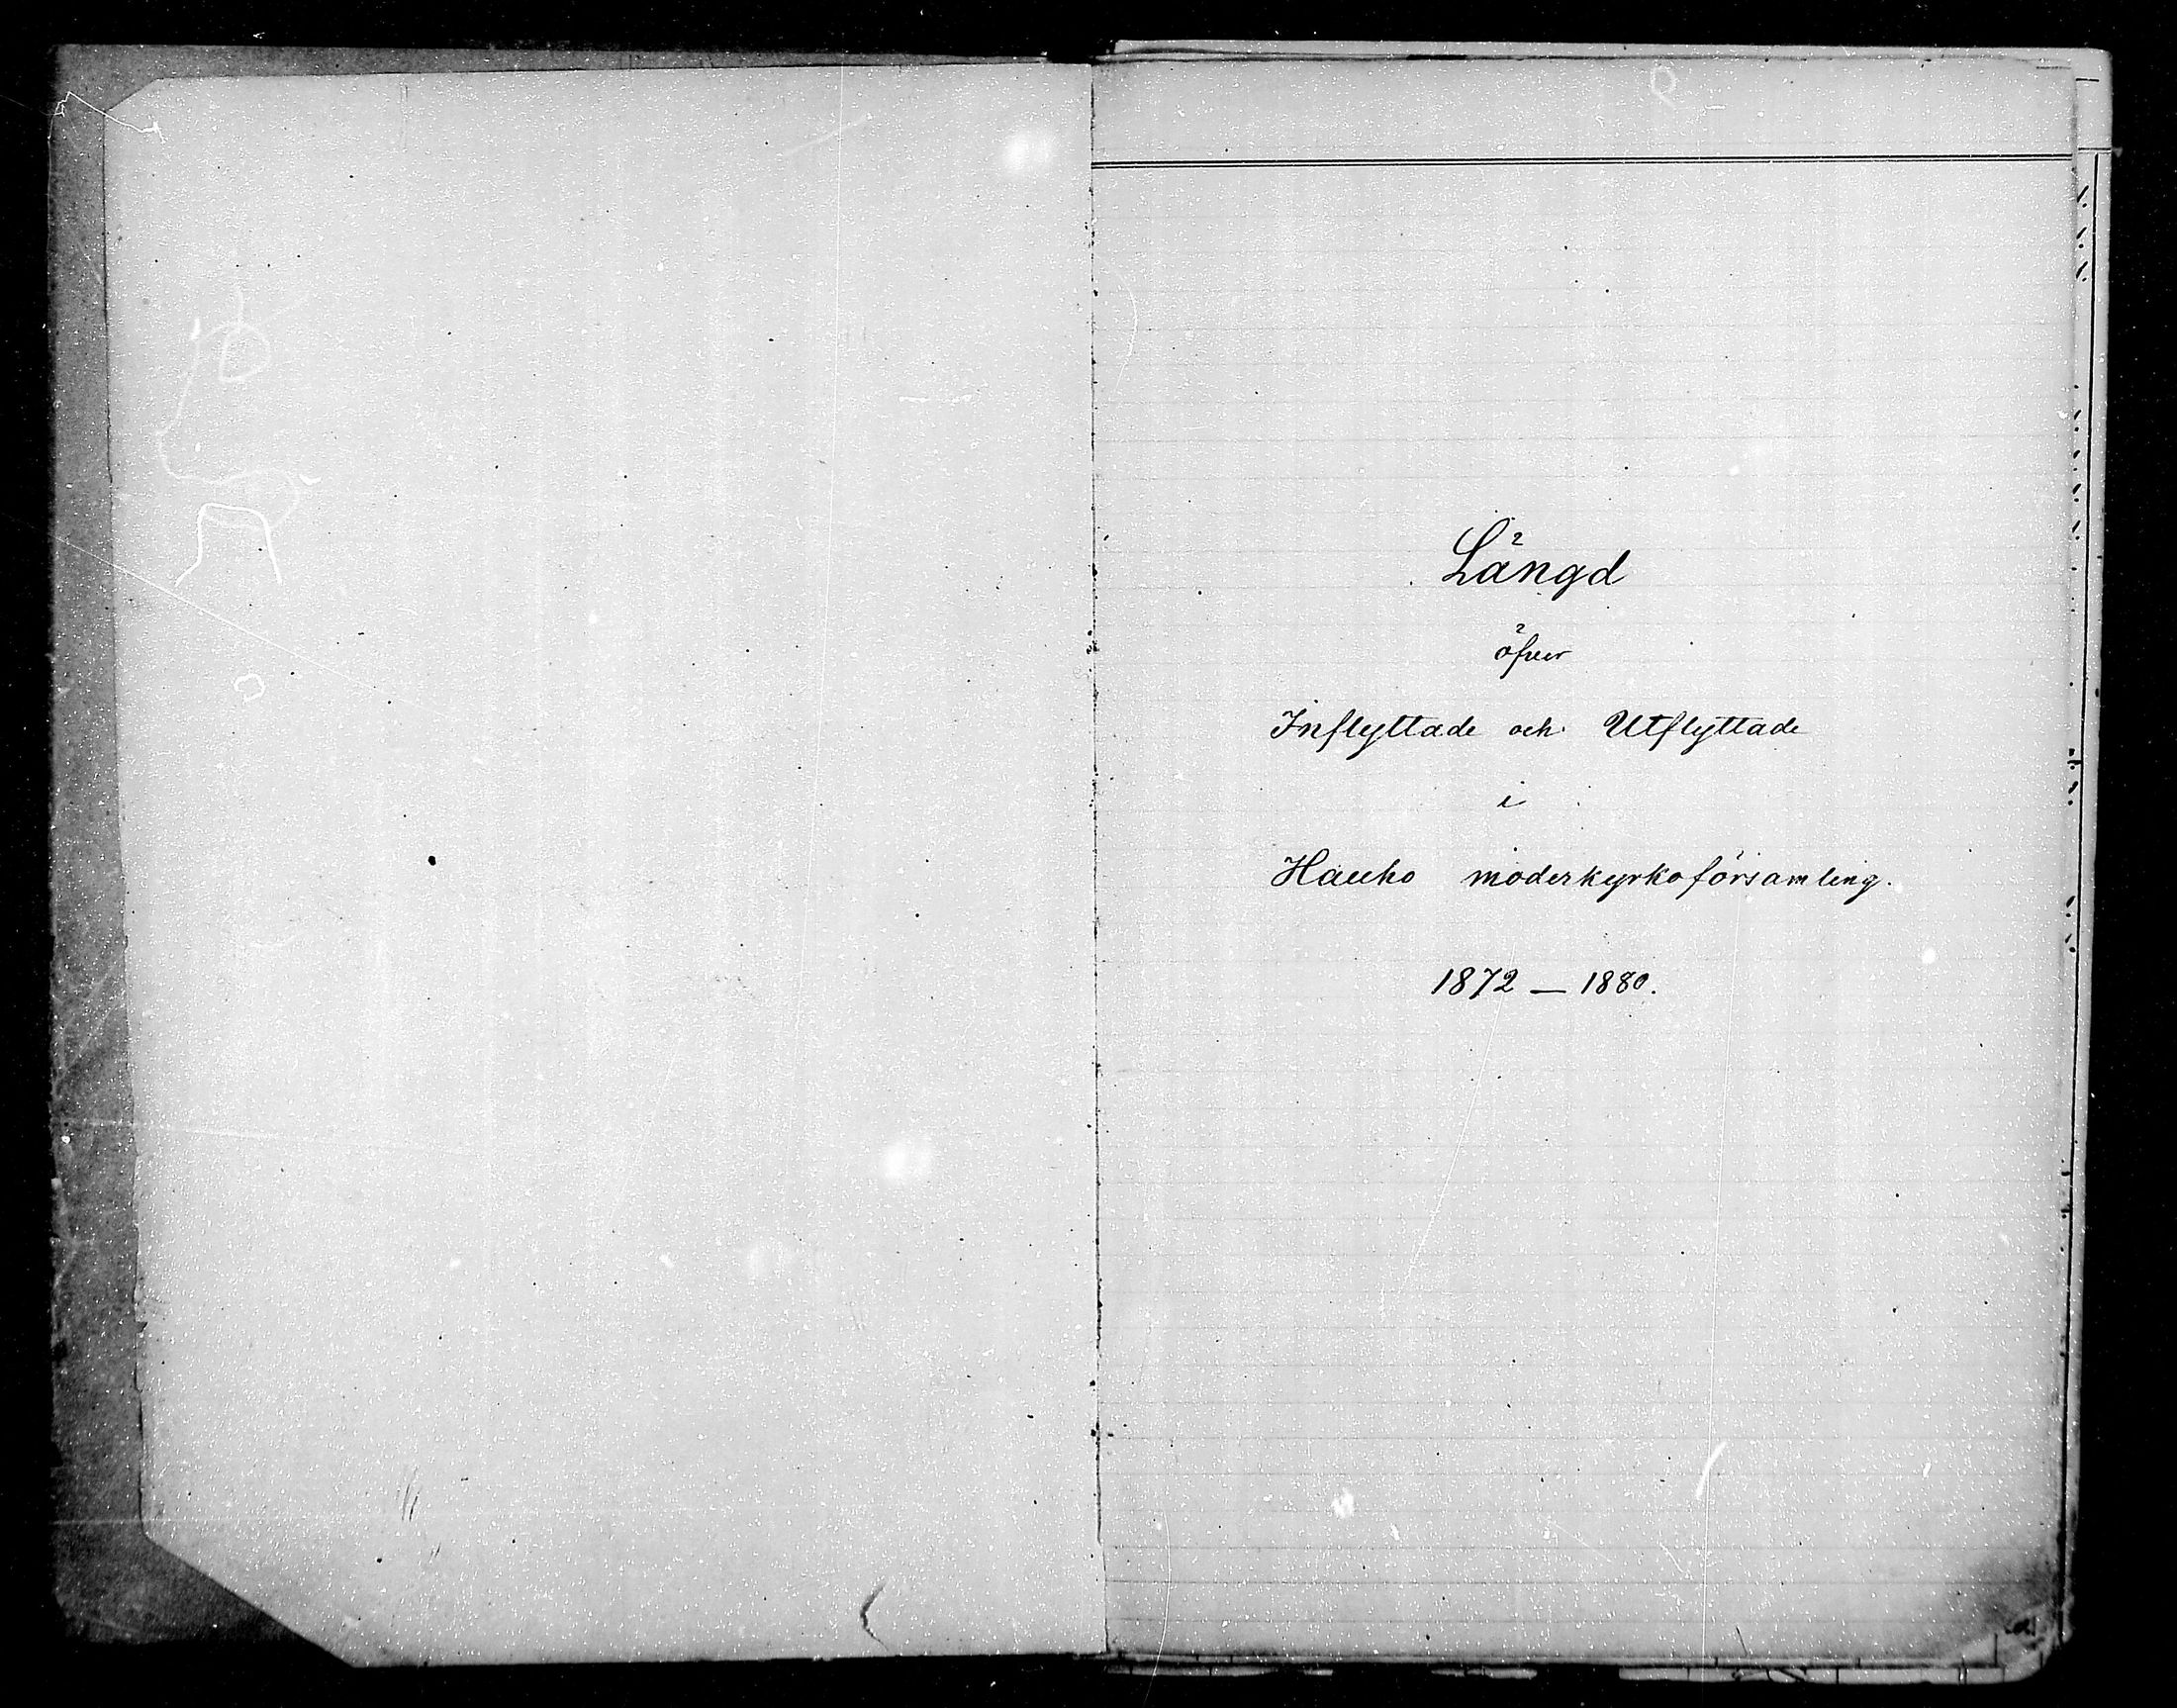 Längd
öfver
Inflyttade och Utflyttade
i
Hauho moderkyrkoförsamling.
1872 — 1880.